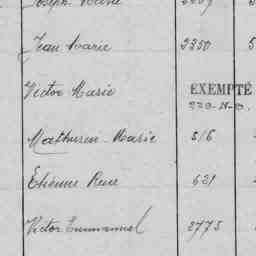 Joseph Marie
Jean Marie 2250 5
Victor Marie EXEMPTÉ
Mathurin Marie 516
Étienne René 621
Victor Emmanuel 2775